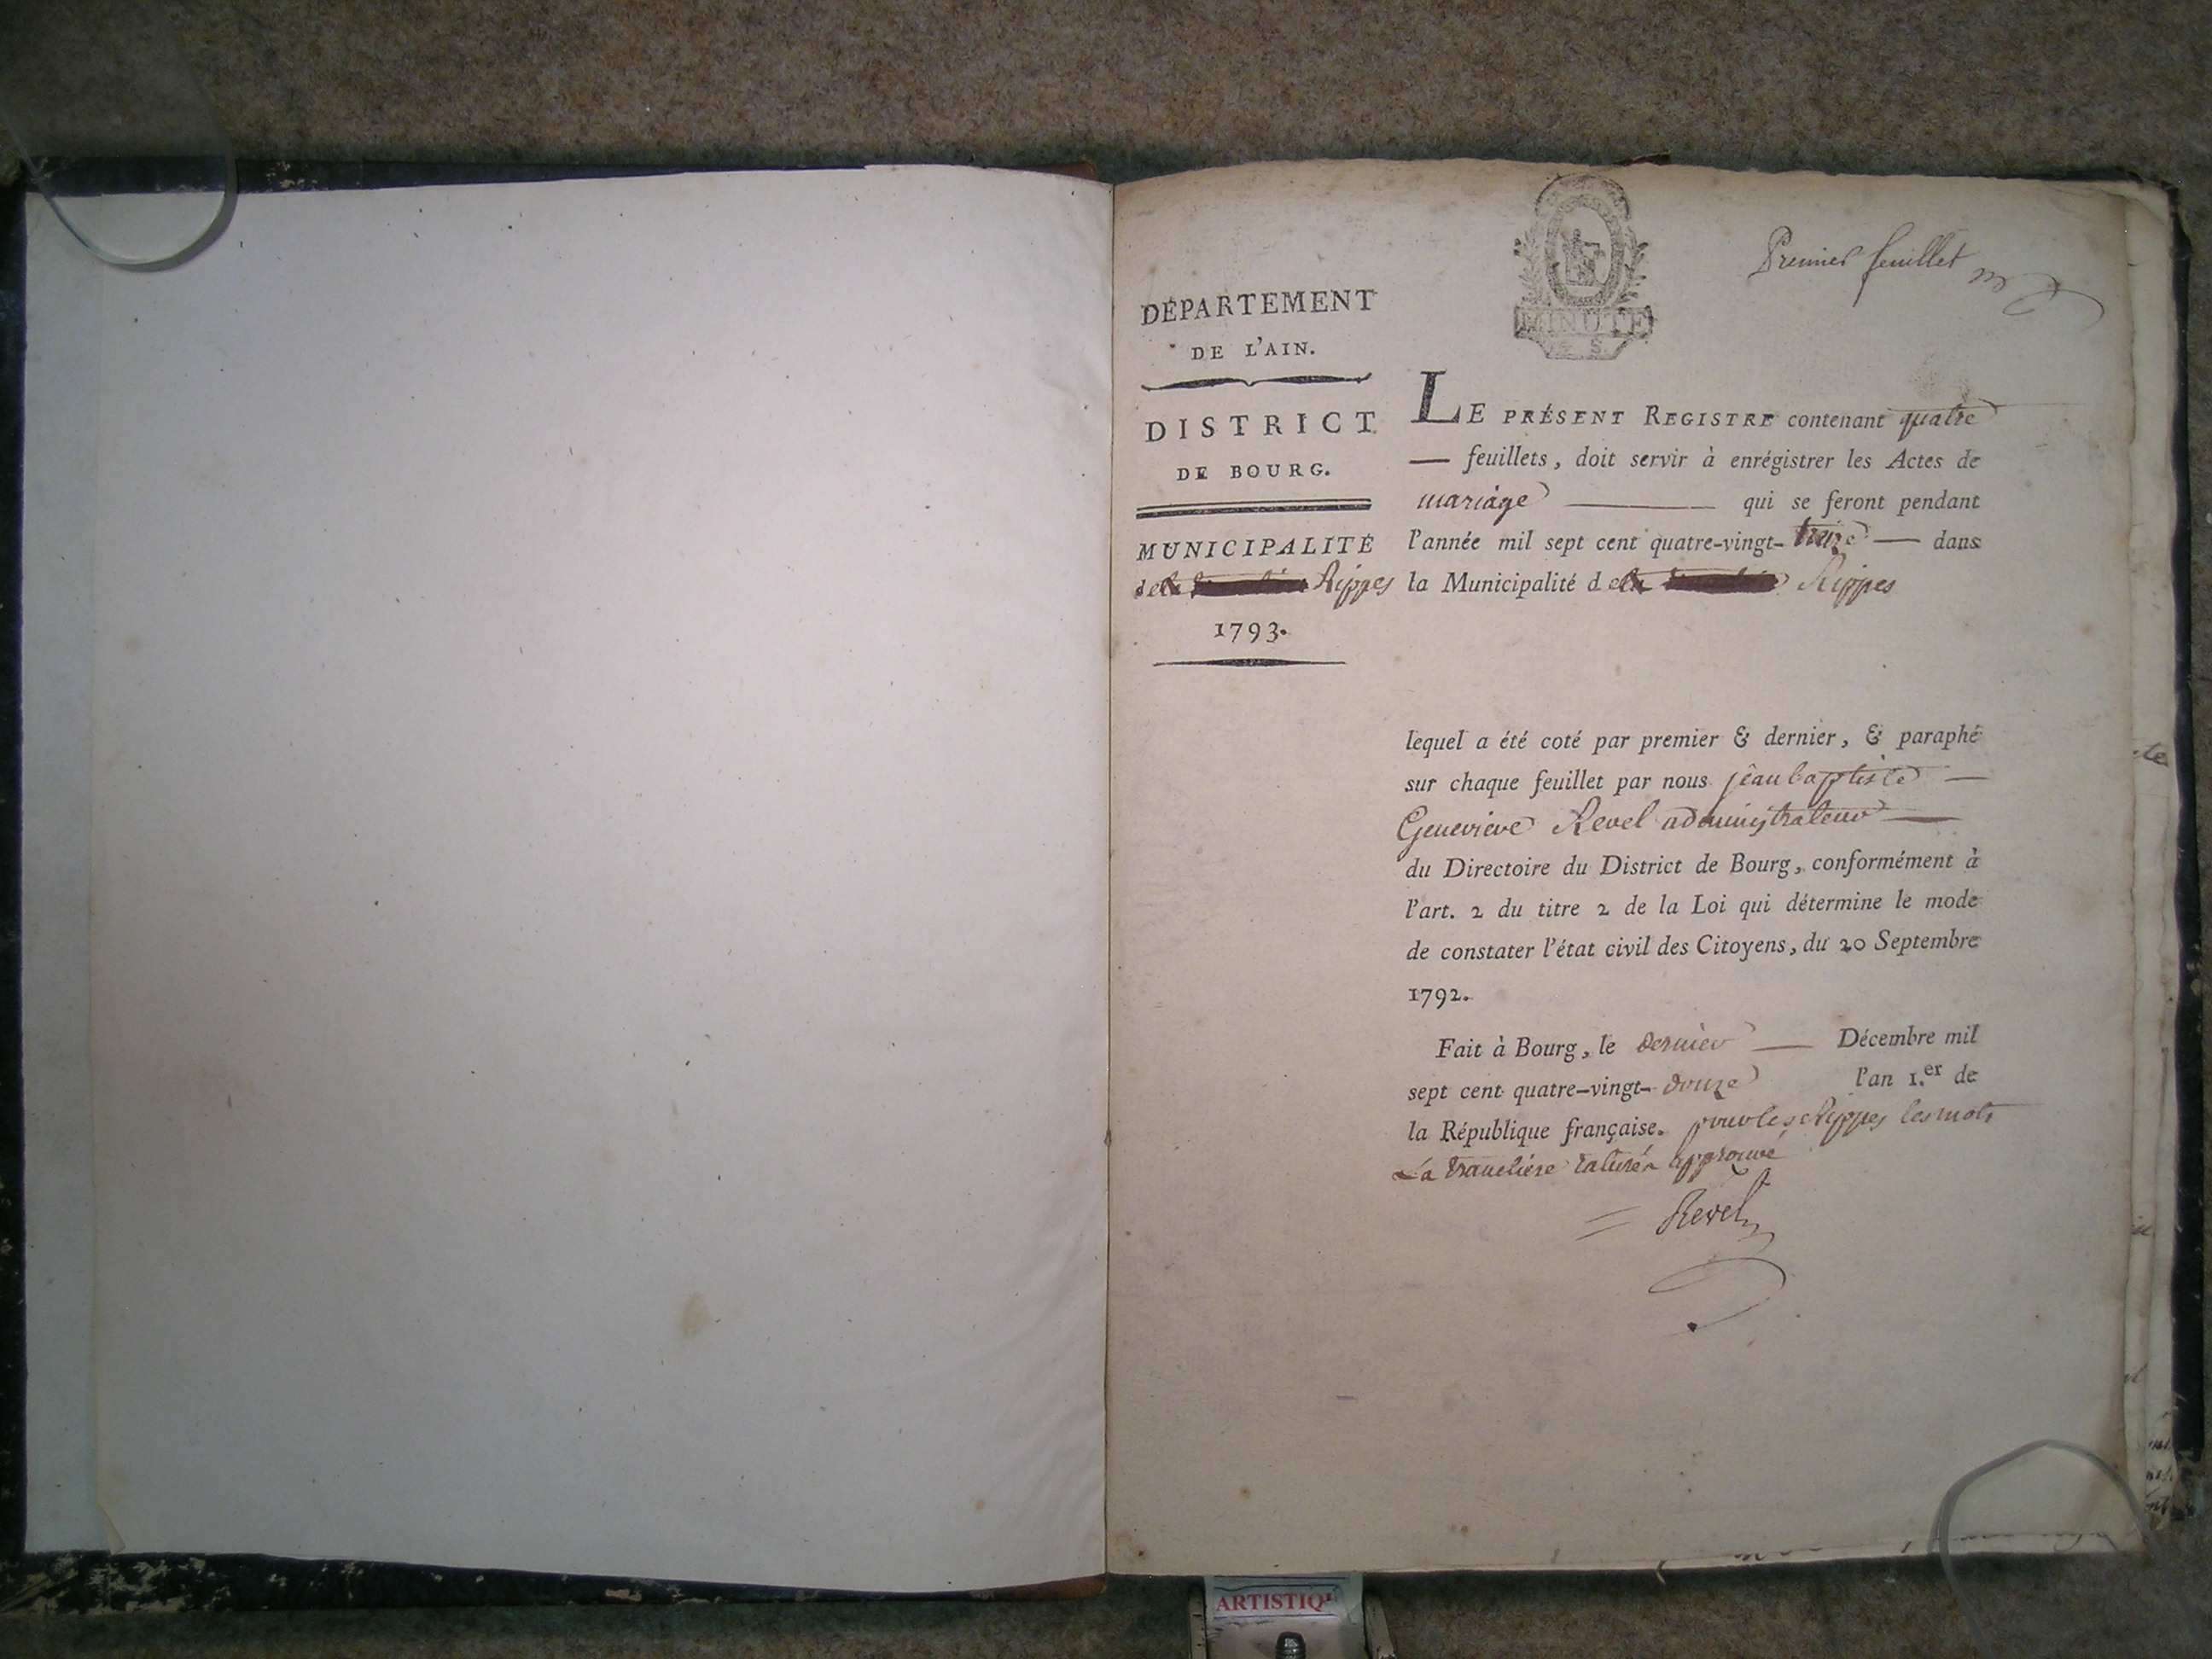 Premier feuillet
MINUTE
S.
DÉPARTEMENT
DE L'AIN.
DISTRICT
DE BOURG.
MUNICIPALITÉ
de la Rippes
1793.
LE PRÉSENT REGISTRE contenant quatre
— feuillets, doit servir à enrégistrer les Actes de
mariage — qui se feront pendant
l'année mil sept cent quatre-vingt-treize — dans
la Municipalité de la Rippes
lequel a été coté par premier & dernier, & paraphé
sur chaque feuillet par nous jean baptiste —
Genevieve Revel administrateur —
du Directoire du District de Bourg, conformément à
l'art. 2 du titre 2 de la Loi qui détermine le mode
de constater l'état civil des Citoyens, du 20 Septembre
1792.
Fait à Bourg, le dernier — Décembre mil
sept cent quatre-vingt-douze l'an 1.er de
la République française. pour les Rippes les mots
La tranclière raturés approuvé
Revel
ARTISTIQ